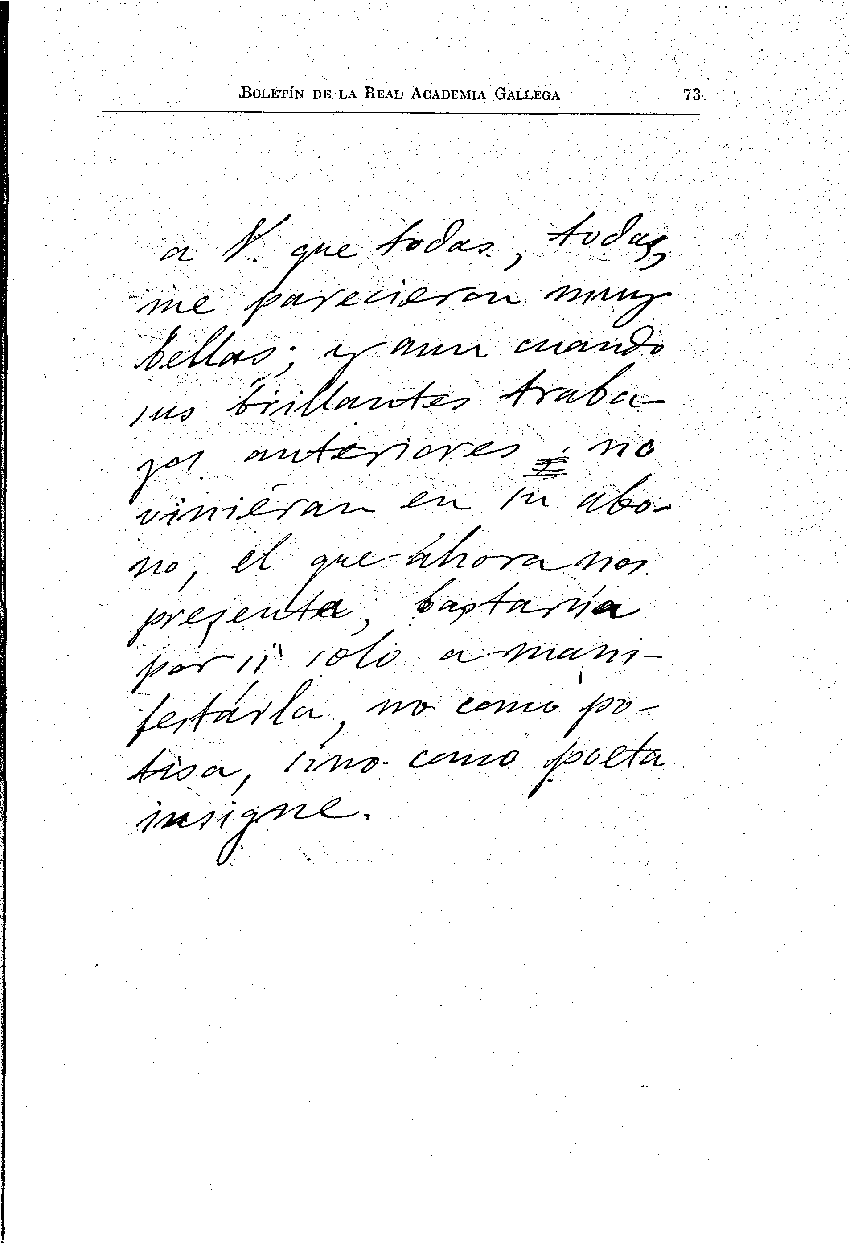 BOLETÍN DE LA REAL ACADEMIA GALLEGA 73
a V. que todas, todas,
me parecieron muy
bellas; y aun cuando
sus brillantes traba-
jos anteriores no
viniéran en su abo-
no, el que ahora nos
presenta, bastaría
por sí solo a mani-
festárla, no como po-
tisa, sino como poeta
insigne.